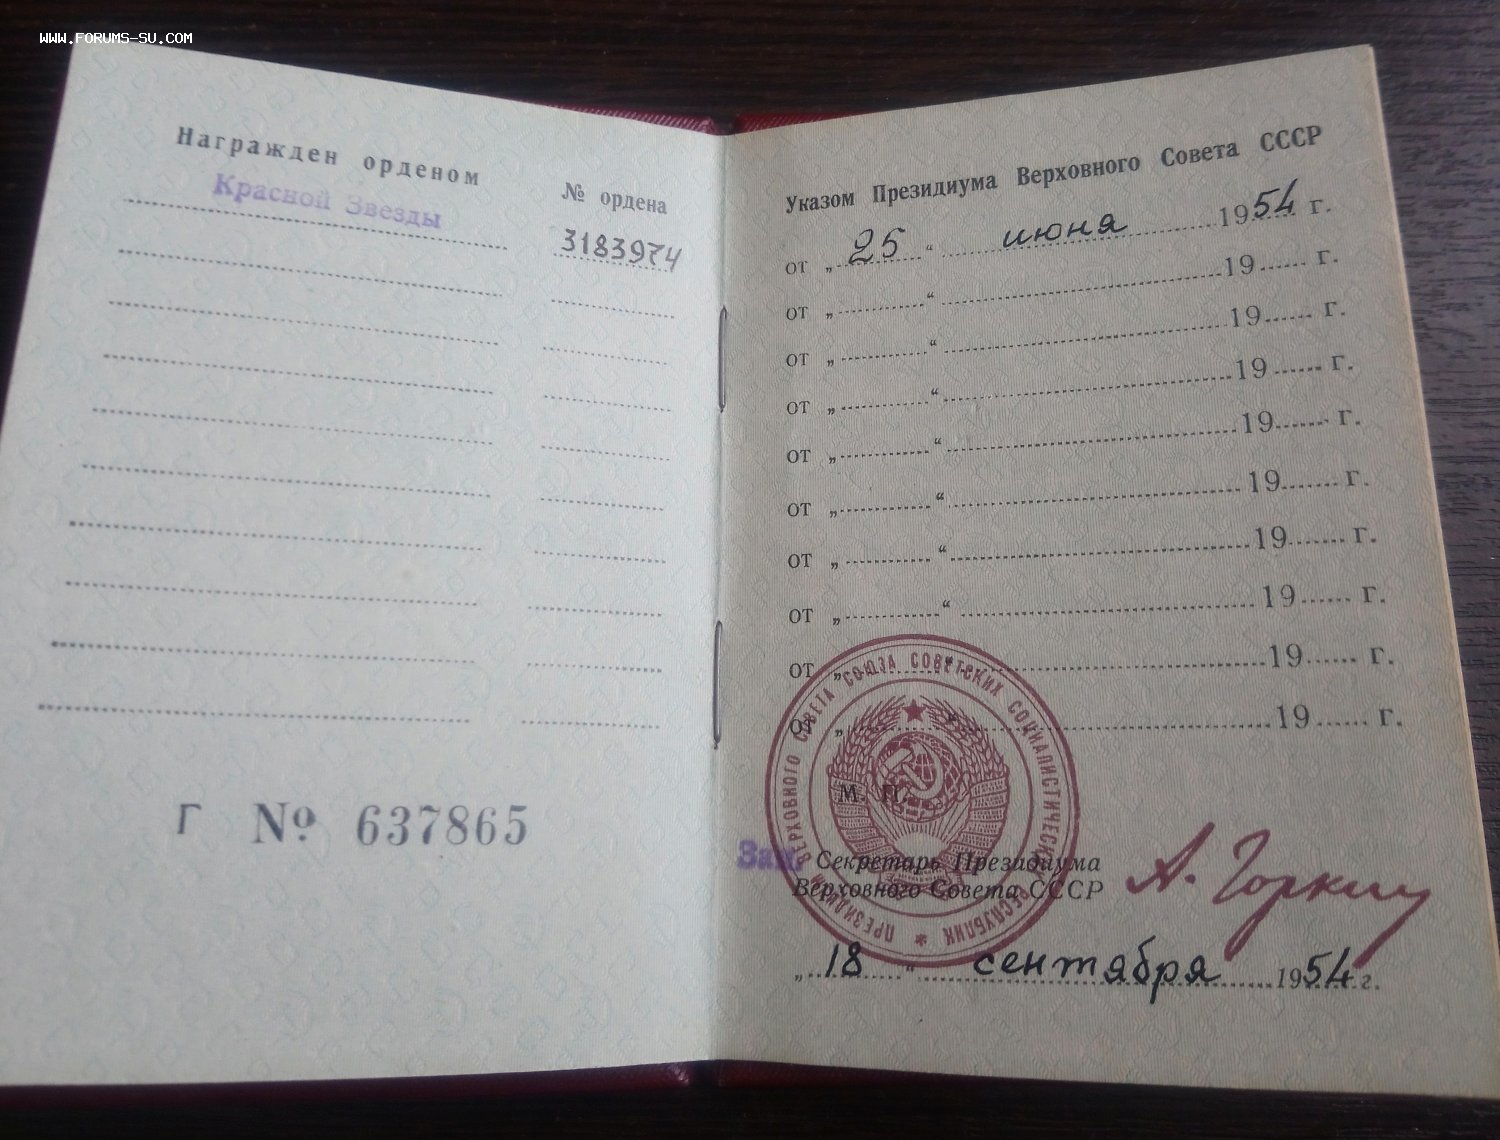 WWW.FORUMS-SU.COM
Награжден орденом
Красной Звезды
№ ордена
3183974
Г № 637865
Указом Президиума Верховного Совета СССР
от „ 25 “ июня 1954 г.
от „ “ 19 г.
от „ “ 19 г.
от „ “ 19 г.
от „ “ 19 г.
от „ “ 19 г.
от „ “ 19 г.
от „ “ 19 г.
от „ “ 19 г.
от „ “ 19 г.
ПРЕЗИДИУМ ВЕРХОВНОГО СОВЕТА СОЮЗА СОВЕТСКИХ СОЦИАЛИСТИЧЕСКИХ РЕСПУБЛИК
М. П.
Зам. Секретарь Президиума
Верховного Совета СССР
А. Горкин
„ 18 “ сентября 1954 г.